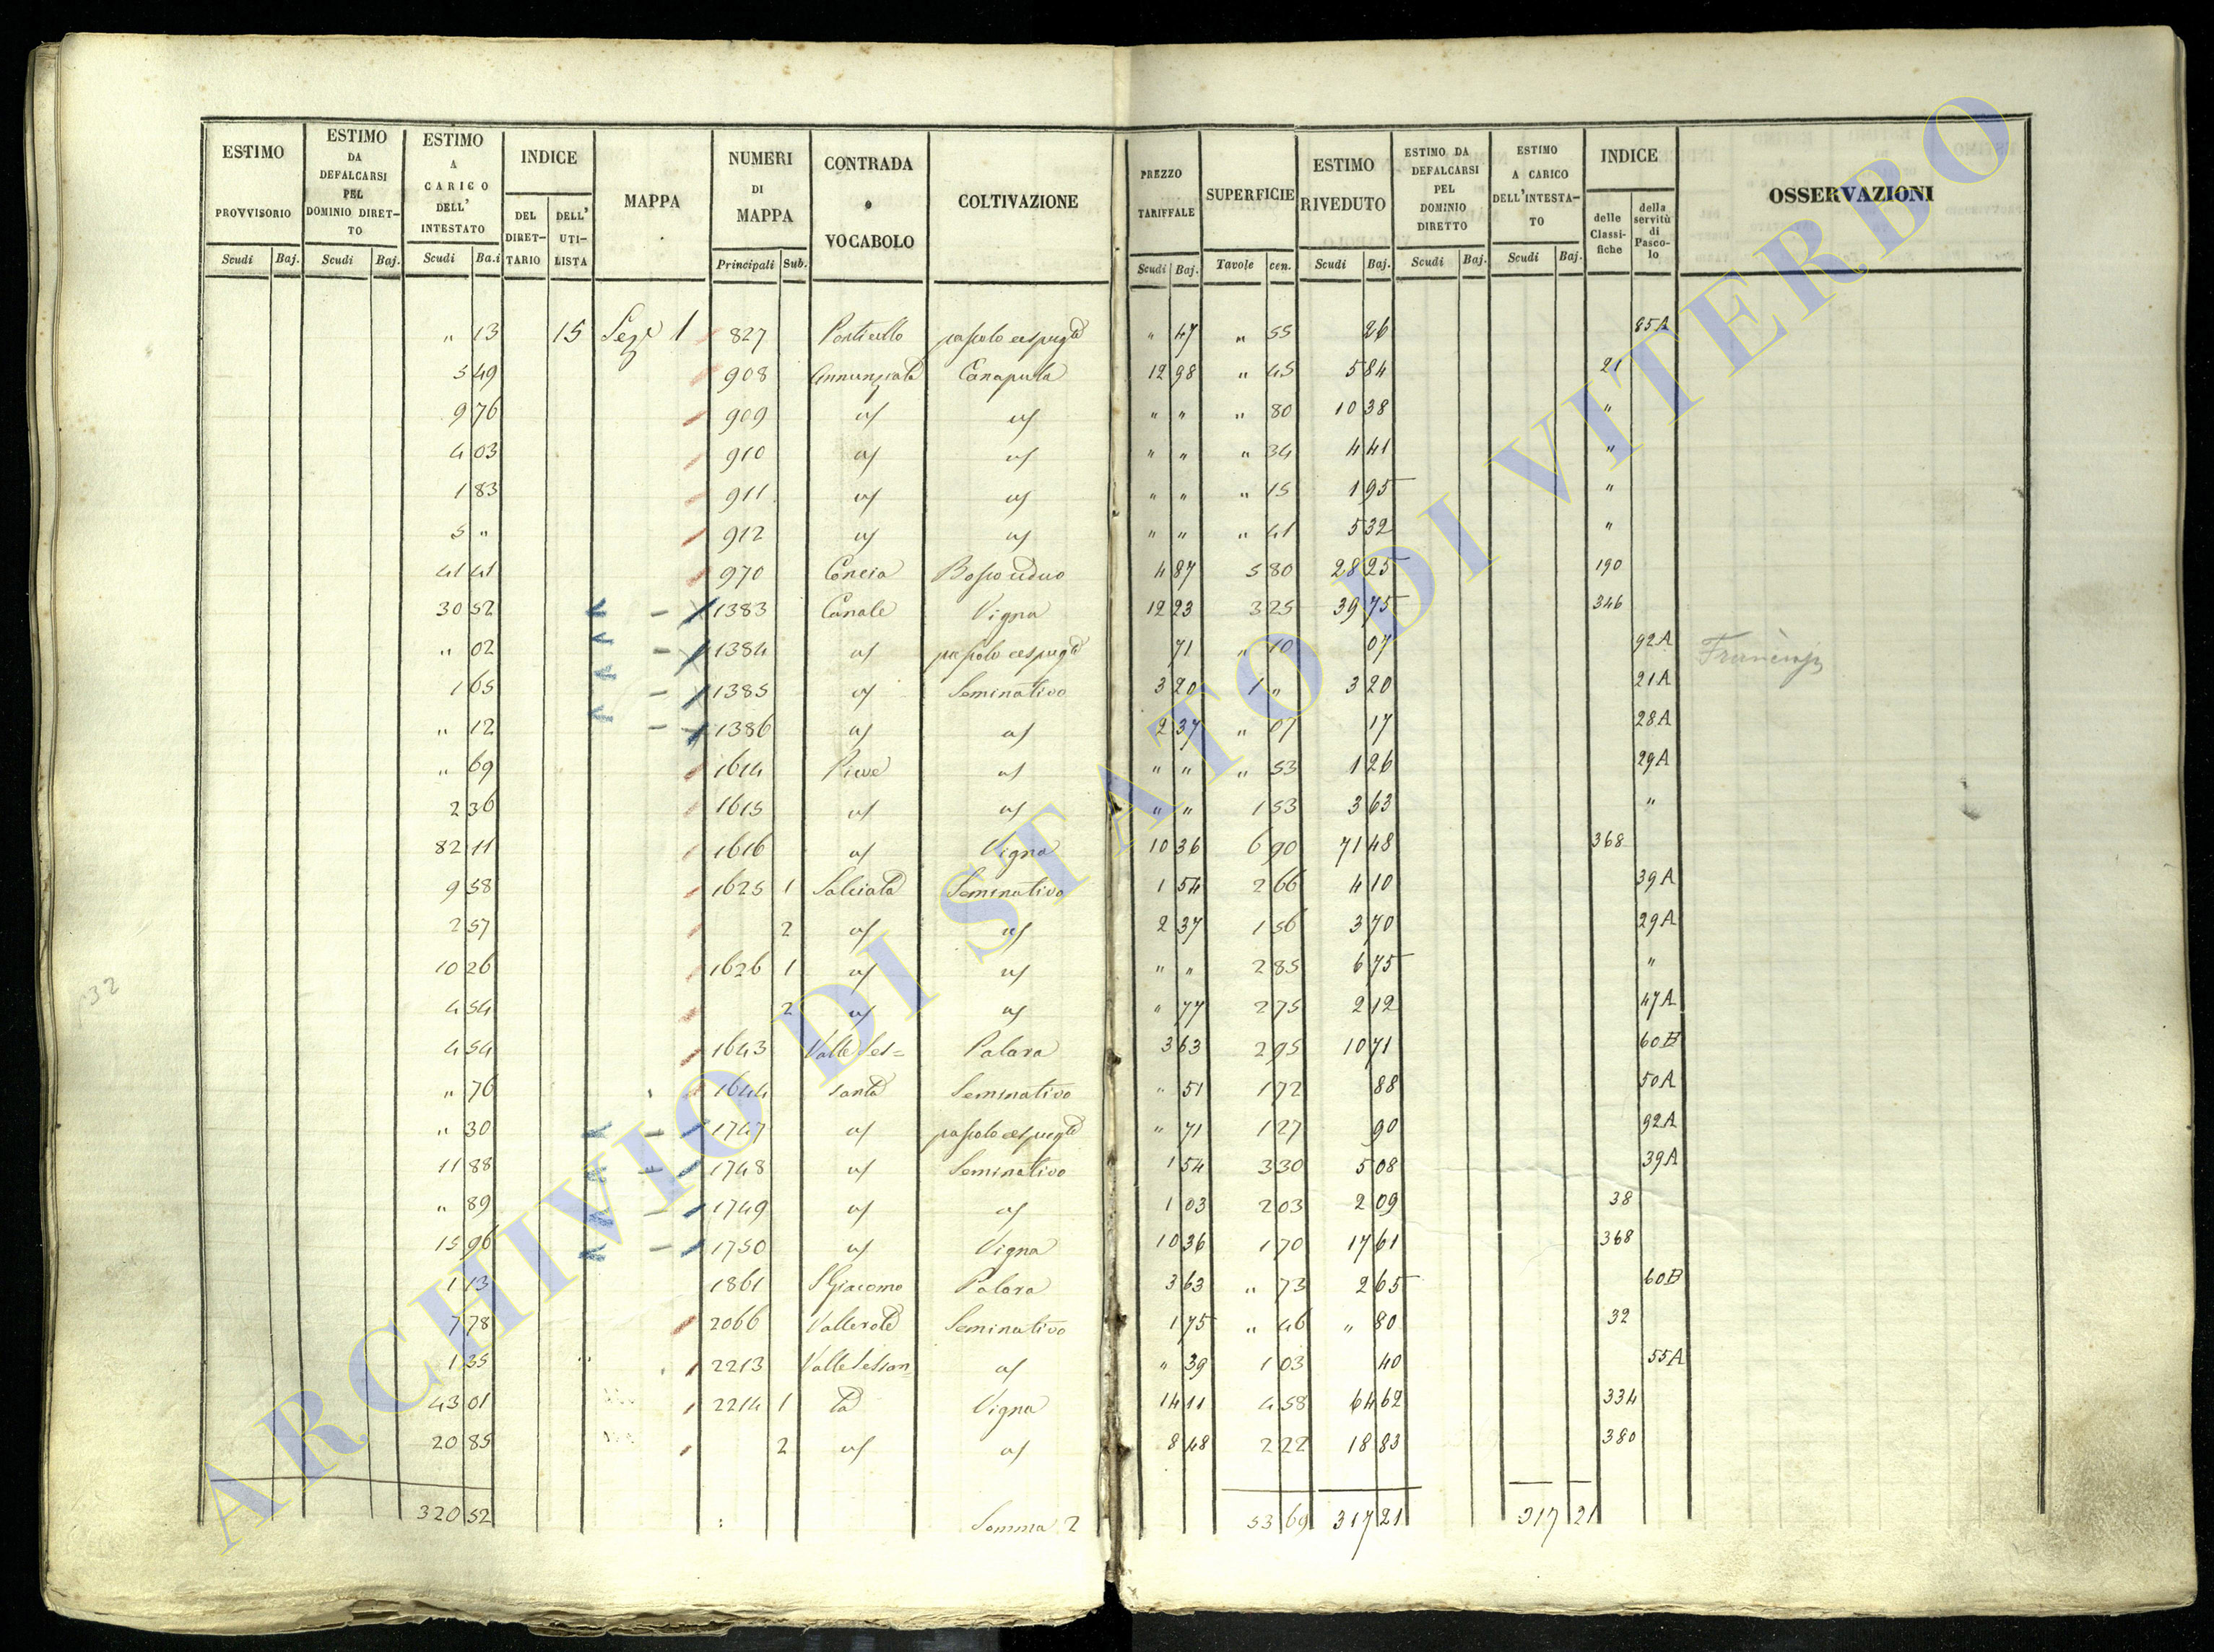 ESTIMO PROVVISORIO | ESTIMO DA DEFALCARSI PEL DOMINIO DIRETTO | ESTIMO A CARICO DELL' INTESTATO | INDICE | MAPPA | NUMERI DI MAPPA | CONTRADA o VOCABOLO | COLTIVAZIONE | PREZZO TARIFFALE | SUPERFICIE | ESTIMO RIVEDUTO | ESTIMO DA DEFALCARSI PEL DOMINIO DIRETTO | ESTIMO A CARICO DELL'INTESTATO | INDICE | OSSERVAZIONI
DEL DIRETTARIO | DELL' UTILISTA | delle Classifiche | della servitù di Pascolo
Scudi | Baj. | Scudi | Baj. | Scudi | Ba.i | Principali | Sub. | Scudi | Baj. | Tavole | cen. | Scudi | Baj. | Scudi | Baj. | Scudi | Baj.
" 13 | 15 | Sez. 1 | 827 | Ponticello | pascolo cespugto | " 47 | " 55 | 26 | 85A
5 49 | 908 | Annunziata | Canapula | 12 98 | " 45 | 5 84 | 21
9 76 | 909 | us | us | " " | " 80 | 10 38 | "
4 03 | 910 | us | us | " " | " 34 | 4 41 | "
1 83 | 911 | us | us | " " | " 15 | 1 95 | "
5 " | 912 | us | us | " " | " 41 | 5 32 | "
41 41 | 970 | Concia | Bosco ceduo | 4 87 | 5 80 | 28 25 | 190
30 52 | 1383 | Canale | Vigna | 12 23 | 3 25 | 39 75 | 346
" 02 | 1384 | us | pascolo cespugto | 71 | " 10 | 07 | 92A
1 65 | 1385 | us | Seminativo | 3 20 | 1 " | 3 20 | 21A
" 12 | 1386 | us | us | 2 37 | " 07 | 17 | 28A
" 69 | 1614 | Pieve | us | " " | " 53 | 1 26 | 29A
2 36 | 1615 | us | us | " " | 1 53 | 3 63 | "
82 11 | 1616 | us | Vigna | 10 36 | 6 90 | 71 48 | 368
9 58 | 1625 | 1 | Salciata | Seminativo | 1 54 | 2 66 | 4 10 | 39A
2 57 | 2 | us | us | 2 37 | 1 56 | 3 70 | 29A
10 26 | 1626 | 1 | us | us | " " | 2 85 | 6 75 | "
4 54 | 2 | us | us | " 77 | 2 75 | 2 12 | 47A
4 54 | 1643 | Valle Ses= | Palara | 3 63 | 2 95 | 10 71 | 60B
" 76 | 1644 | santa | Seminativo | " 51 | 1 72 | 88 | 50A
" 30 | 1747 | us | pascolo cespugto | " 71 | 1 27 | 90 | 92A
11 88 | 1748 | us | Seminativo | 1 54 | 3 30 | 5 08 | 39A
" 89 | 1749 | us | us | 1 03 | 2 03 | 2 09 | 38
15 96 | 1750 | us | Vigna | 10 36 | 1 70 | 17 61 | 368
1 13 | 1861 | S Giacomo | Palara | 3 63 | " 73 | 2 65 | 60B
7 78 | 2066 | Vallerota | Seminativo | 1 75 | " 46 | " 80 | 32
1 35 | 2213 | Valle Sessan | us | " 39 | 1 03 | 40 | 55A
43 01 | 2214 | 1 | ta | Vigna | 14 11 | 4 58 | 64 62 | 334
20 85 | 2 | us | us | 8 48 | 2 22 | 18 83 | 380
320 52 | Somma 2 | 53 69 | 317 21 | 317 21
32
ARCHIVIO DI STATO DI VITERBO